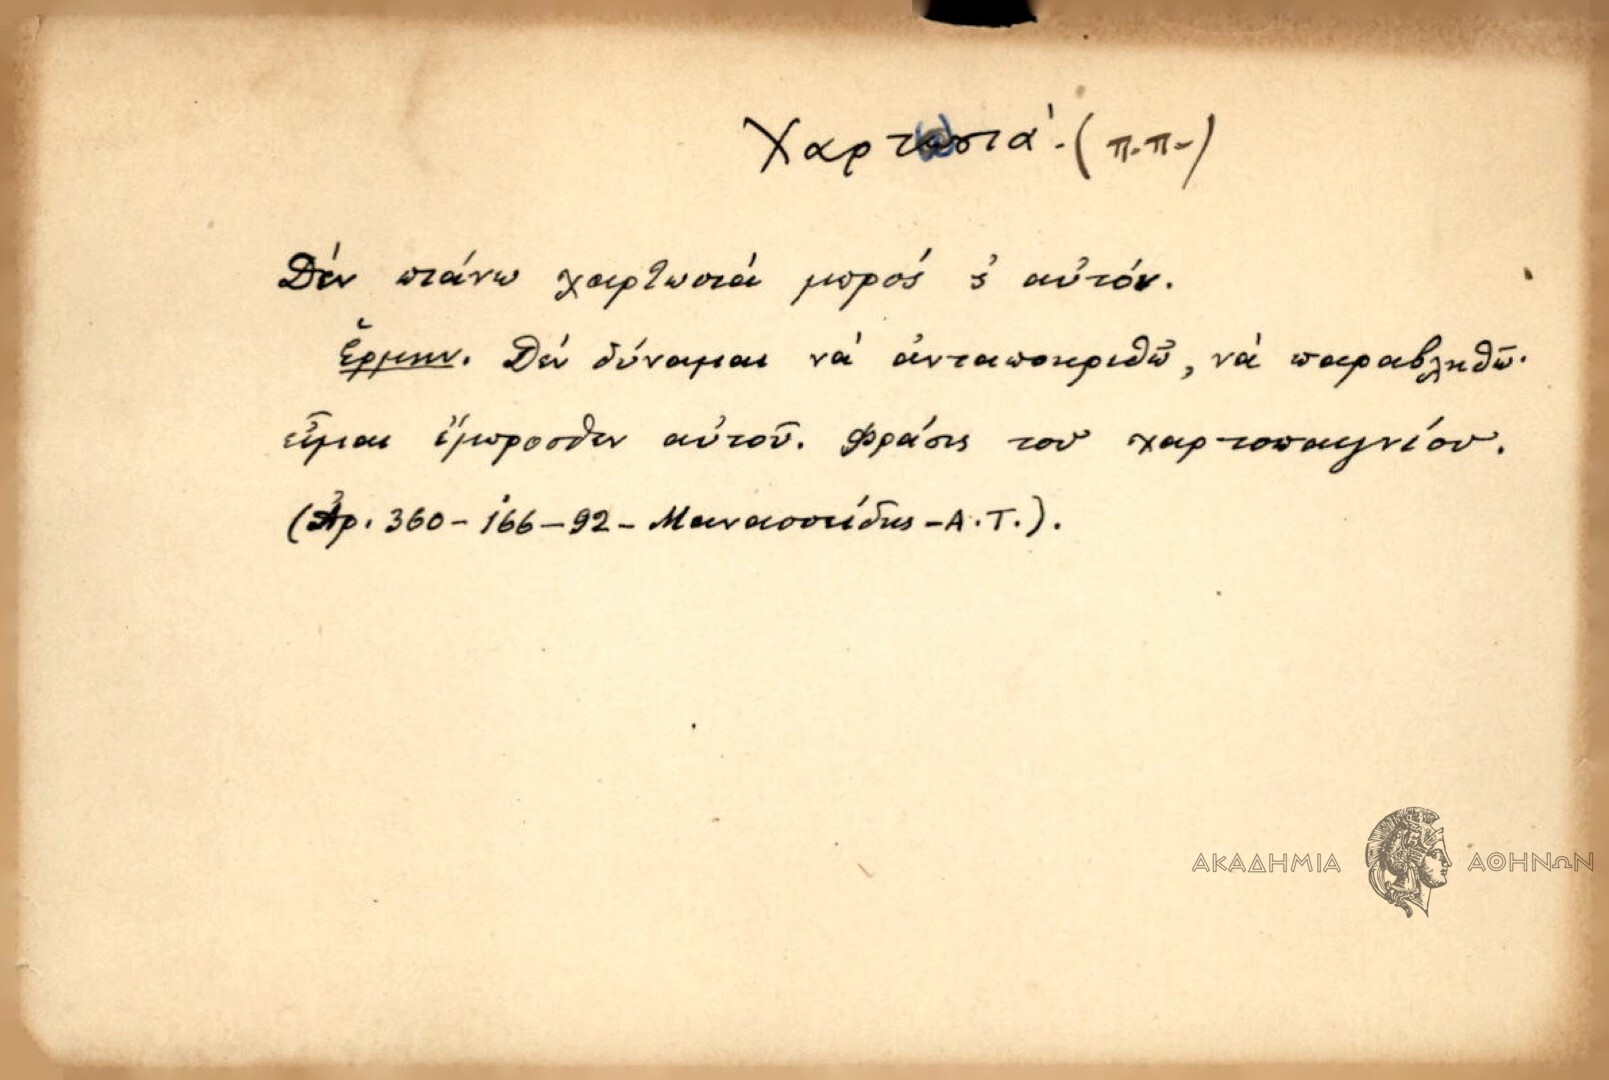 Χαρτωσιά. (π.π.)
Δέν πιάνω χαρτωσιά μπρός ς αὐτόν.
Ἑρμην. Δέν δύναμαι νά ἀνταποκριθῶ, νά παραβληθῶ.
εἶμαι ἔμπροσθεν αὐτοῦ. Φράσις τοῦ χαρτοπαιγνίου.
(Ἀρ. 360-166-92- Μανασσείδης -Α.Τ.).
ΑΚΑΔΗΜΙΑ ΑΘΗΝΩΝ